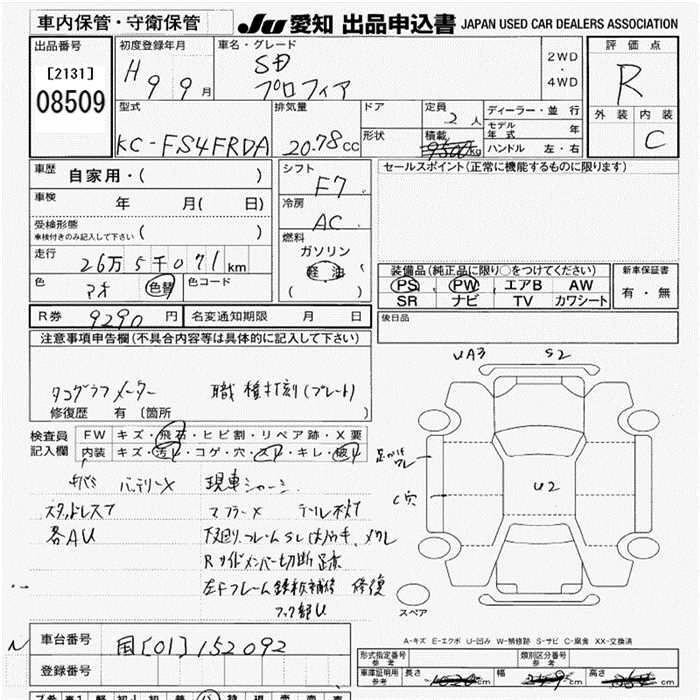 車内保管・守衛保管
JU 愛知 出品申込書 JAPAN USED CAR DEALERS ASSOCIATION
出品番号
[2131]
08509
初度登録年月
H 9 9月
車名・グレード
SD
プロフィア
2WD
・
4WD
評価点
R
外装 内装
C
型式
KC-FS4FRDA
排気量
20.78cc
ドア
形状
定員
2人
積載
9500kg
ディーラー・並行
モデル年式 年
ハンドル 左・右
車歴
自家用・( )
車検
年 月( 日)
受検形態
車検付きのみ記入して下さい ( )
走行
26万5千071km
色
アオ 色替
色コード
シフト
F7
冷房
AC
燃料
ガソリン
軽油
( )
セールスポイント(正常に機能するものに限ります)
装備品(純正品に限り○をつけてください)
PS PW エアB AW
SR ナビ TV カワシート
新車保証書
有・無
R券 9290円
名変通知期限 月 日
後日品
注意事項申告欄(不具合内容等は具体的に記入して下さい)
タコグラフメーター 職権打刻(プレート)
修復歴 有 〔箇所 〕
検査員
記入欄
FW キズ・飛石・ヒビ割・リペア跡・X要
内装 キズ・汚れ・コゲ・穴・スレ・キレ・破れ
バッテリーX 現車シャーシ
スタッドレス7 マフラーX テールレンズ
各AU 下回りフレームSし
Rサイドメンバー切断跡
左Fフレーム 修復
フック部U
UA3 S2
U2
C穴
スペア
A-キズ E-エクボ U-凹み W-補修跡 S-サビ C-腐食 XX-交換済
車台番号
国[01]152092
登録番号
形式指定番号
参考
類別区分番号
参考
車庫証明用
参考
長さ 幅 高さ